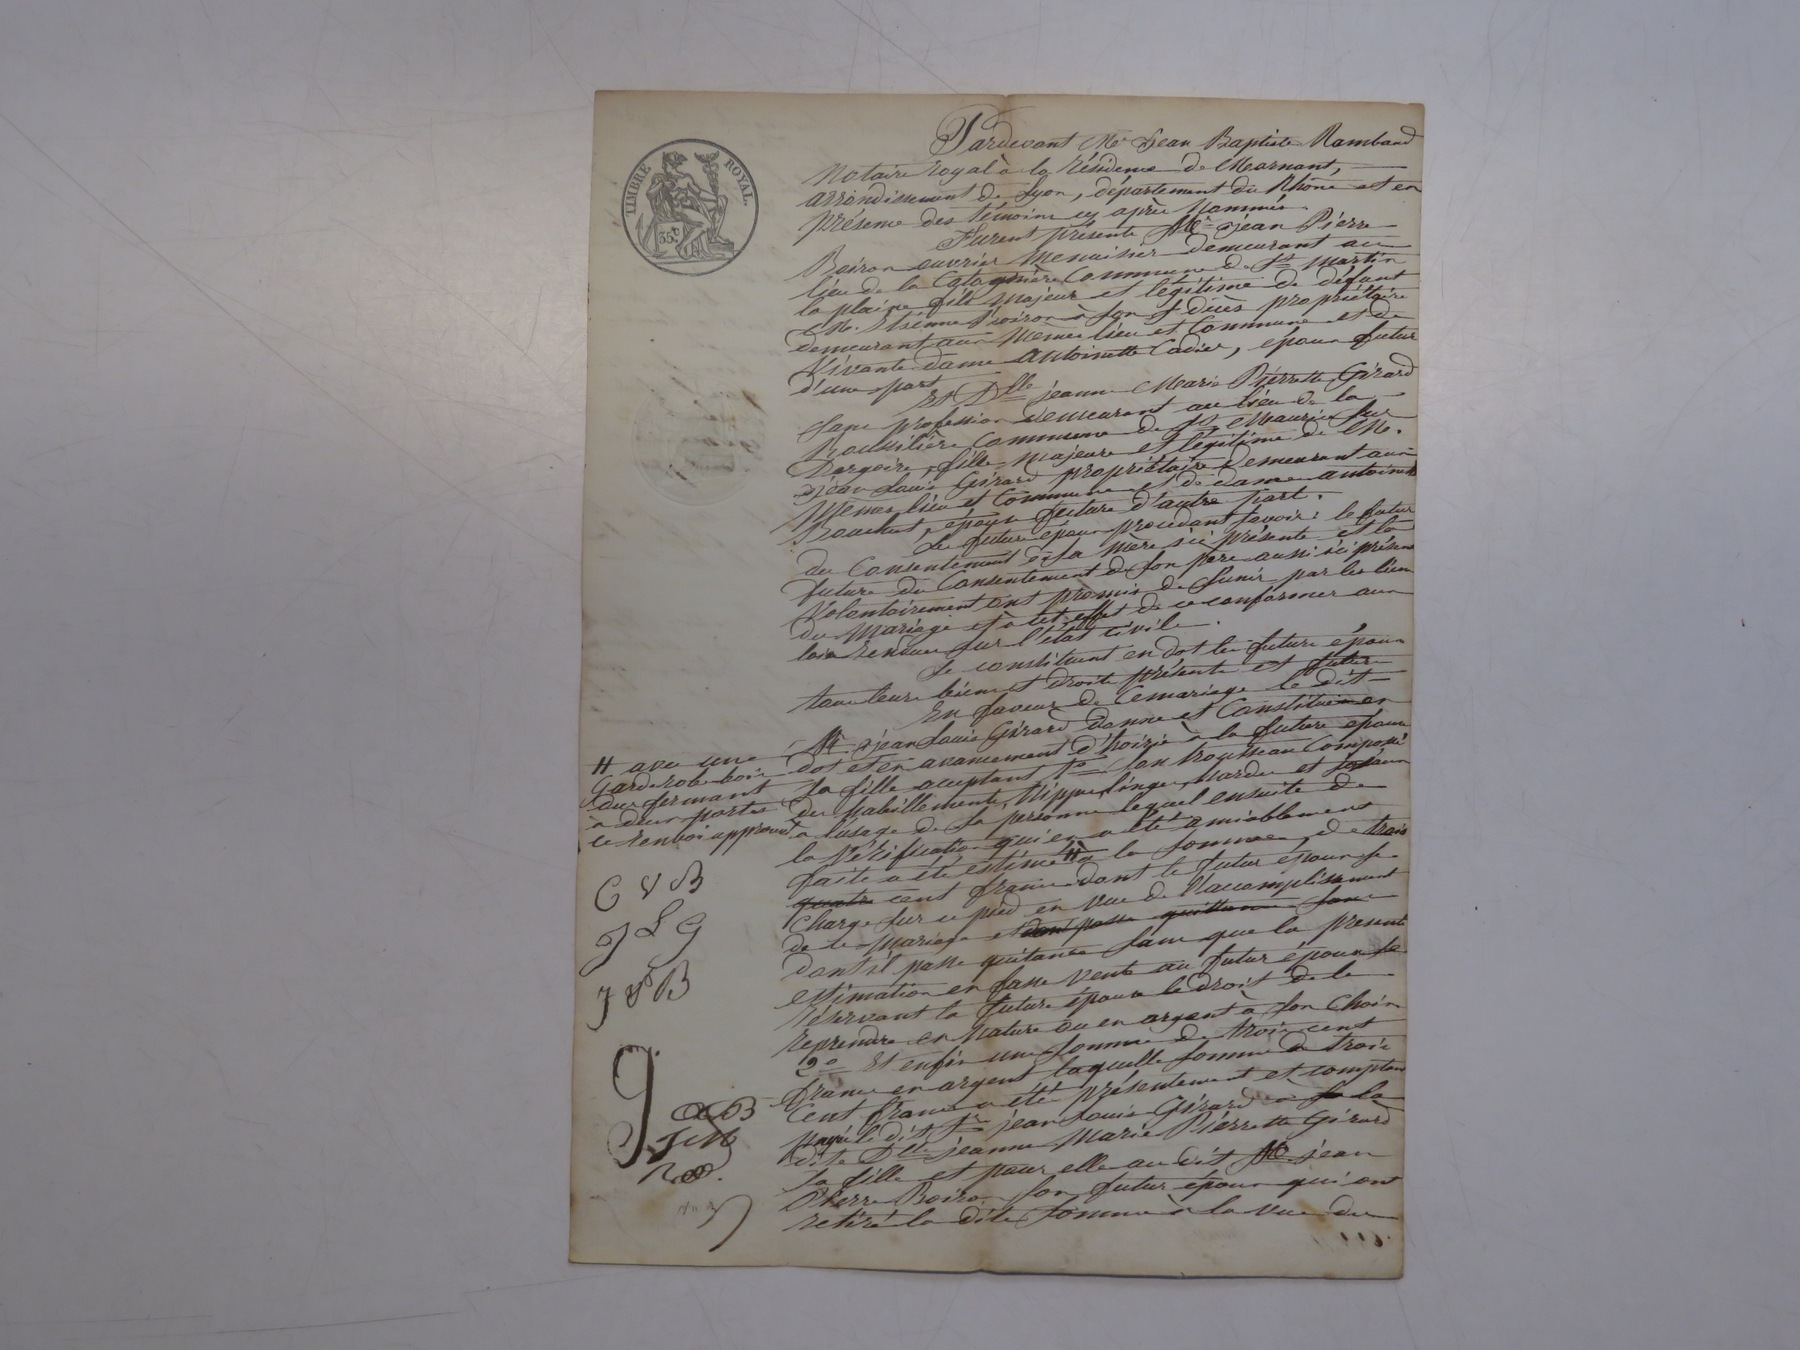 TIMBRE ROYAL.
35 c
Pardevant Me Jean Baptiste Rambaud
Notaire royal à la résidence de Mornant,
arrondissement de Lyon, département du Rhône et en
présence des témoins cy après nommés.
Furent présents Mr jean Pierre
Boiron ouvrier menuisier demeurant au
lieu de la Catonnière Commune de St Martin
la plaine fils majeur et légitime de défunt
M. Etienne Boiron à son décès propriétaire
demeurant aux mêmes lieu et Commune et de
Vivante dame Antoinette Cadier, époux futur
d'une part
Et Dlle jeanne Marie Pierrette Girard
sans profession demeurant au lieu de la
Rousilière Commune de St Maurice sur
Dargoire, fille majeure et légitime de M.
jean Louis Girard propriétaire demeurant aux
mêmes lieu et Commune et de dame antoinette
Bouchut, épouse future d'autre part.
Les futurs époux procédant savoir: le futur
du Consentement de sa mère ici présente et la
future du Consentement de son père aussi ici présent
Volontairement ont promis de s'unir par les liens
du Mariage et à cet effet de se conformer aux
lois rendues sur l'état civile.
Se constituent en dot les futurs époux
tous leurs biens et droits présents et futurs
En faveur de ce mariage le dit
Mr jean Louis Girard donne et Constitue en
dot et en avancement d'hoirie à la future épouse
sa fille acceptant 1o son trousseau Composé
des habillements, Nippes, linges, hardes et joyaux
a l'usage de sa personne lequel ensuite de
la Vérification qui en a été amiablement
faite a été estimé # à la somme de trois
quatre cent francs dont le futur époux se
Charge sur ce pied en vue de l'accomplissement
de ce Mariage et dont passe quittance sans
dont il passe quitance sans que la présente
estimation en fasse vente au futur époux se
réservant la future épouse le droit de le
reprendre en Nature ou en argent à son choix
2o Et enfin une somme de trois cent
francs en argent laquelle somme de trois
Cent francs a été présentement et comptant
payé le dit Sr jean Louis Girard à la
dite Dlle jeanne Marie Pierrette Girard
sa fille et pour elle au dit Mr jean
Pierre Boiron son futur époux qui ont
retiré la dite somme à la vue du
# avec une
Garderobe bois
dur fermant
à deux portes
ce renvoi approuvé
J L G